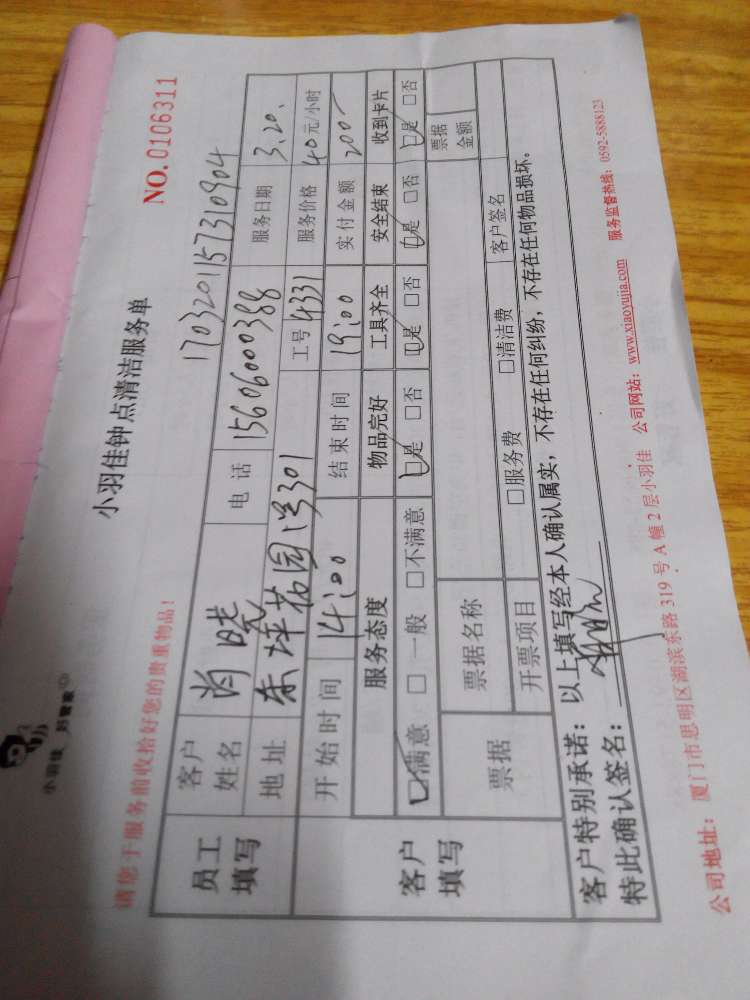 小羽佳 好管家
小羽佳钟点清洁服务单
NO.0106311
请您于服务前收拾好您的贵重物品！
1703201157310904
员工填写
客户姓名 尚晓 电话 15606000388 服务日期 3.20.
地址 东坪花园 301 工号 4331 服务价格 40元/小时
开始时间 14:00 结束时间 19:00 实付金额 200-
客户填写
服务态度 物品完好 工具齐全 安全结束 收到卡片
☑满意 □一般 □不满意 ☑是 □否 ☑是 □否 ☑是 □否 ☑是 □否
票据 票据名称 票据金额
开票项目 □服务费 □清洁费 客户签名
客户特别承诺：以上填写经本人确认属实，不存在任何纠纷，不存在任何物品损坏。
特此确认签名：
公司地址：厦门市思明区湖滨东路319号A幢2层小羽佳 公司网站：www.xiaoyujia.com 服务监督热线：0592-5888123